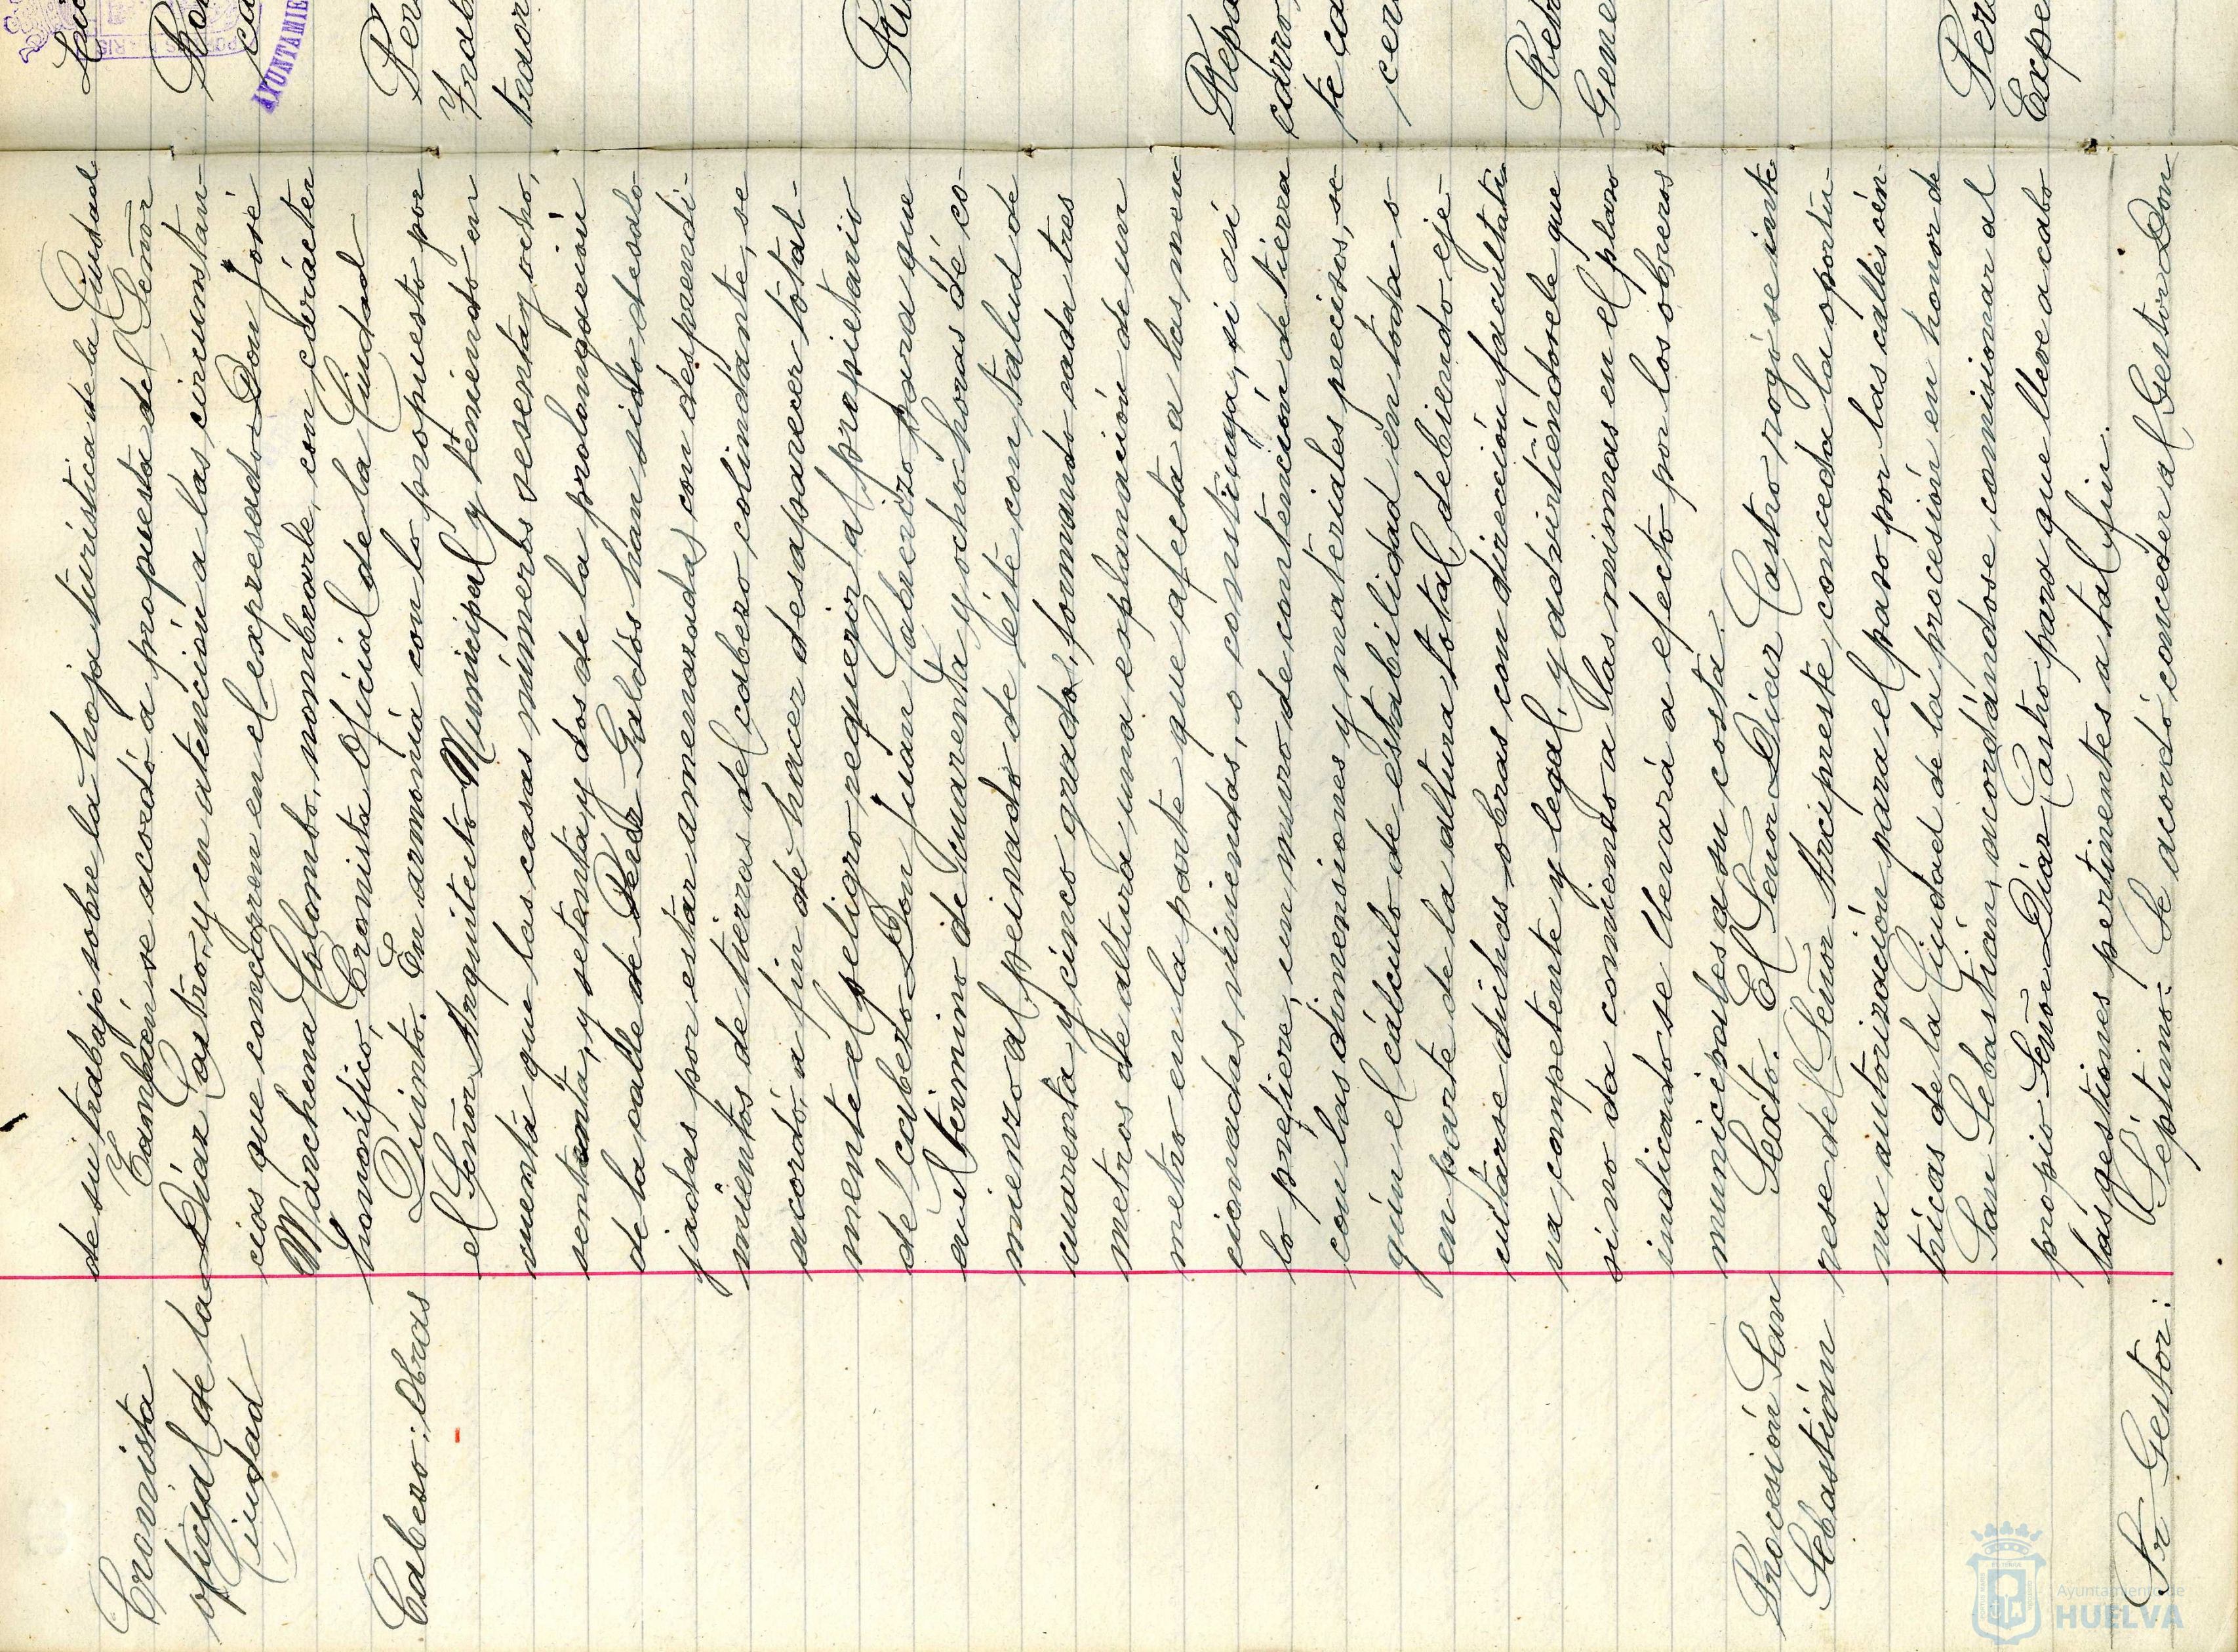 de su trabajo sobre la hoja turística de la Ciudad
Cronista
oficial de la
Ciudad
También se acordó a propuesta del Señor
Díaz Castro, y en atención a las circunstan-
cias que concurren en el expresado Don José
Manchena Colombo, nombrarle, con carácter
honorífico, Cronista Oficial de la Ciudad
Cabezo: Obras
Quinto. En armonía con lo propuesto por
el Señor Arquitecto Municipal y teniendo en
cuenta que las casas números sesenta y ocho,
setenta, y setenta y dos de la prolongación
de la calle de Pérez Galdós han sido desalo-
jadas por estar amenazadas con desprendi-
mientos de tierras del cabezo colindante, se
acordó, a fin de hacer desaparecer total-
mente el peligro requerir al propietario
del cabezo Don Juan Cabrerizo para que
en el término de cuarenta y ocho horas dé co-
mienzo al peinado de éste con talud de
cuarenta y cinco grados, formando cada tres
metros de altura una explanación de un
metro en la parte que afecta a las men-
cionadas viviendas, o construya, si así
lo prefiere, un muro de contención de tierra
con las dimensiones y materiales precisos, se-
gún el cálculo de estabilidad en toda o
en parte de la altura total, debiendo eje-
cutarse dichas obras con dirección facultati-
va competente y legal, y advirtiéndosele que
si no da comienzo a las mismas en el plazo
indicado se llevará a efecto por los obreros
municipales a su costa.
Procesión San
Sebastián
Sexto. El Señor Díaz Castro rogó se inte-
rese del Señor Arcipreste conceda la oportu-
na autorización para el paso por las calles cén-
tricas de la Ciudad de la procesión en honor de
San Sebastián, acordándose, comisionar al
propio Señor Díaz Castro para que lleve a cabo
las gestiones pertinentes a tal fin.
Sr Gestor:
Séptimo: Se acordó conceder al Gestor Don
AYUNTAMIE
Repa
carro
te ca
cer
Gene
Expe
Ayuntamiento de
HUELVA